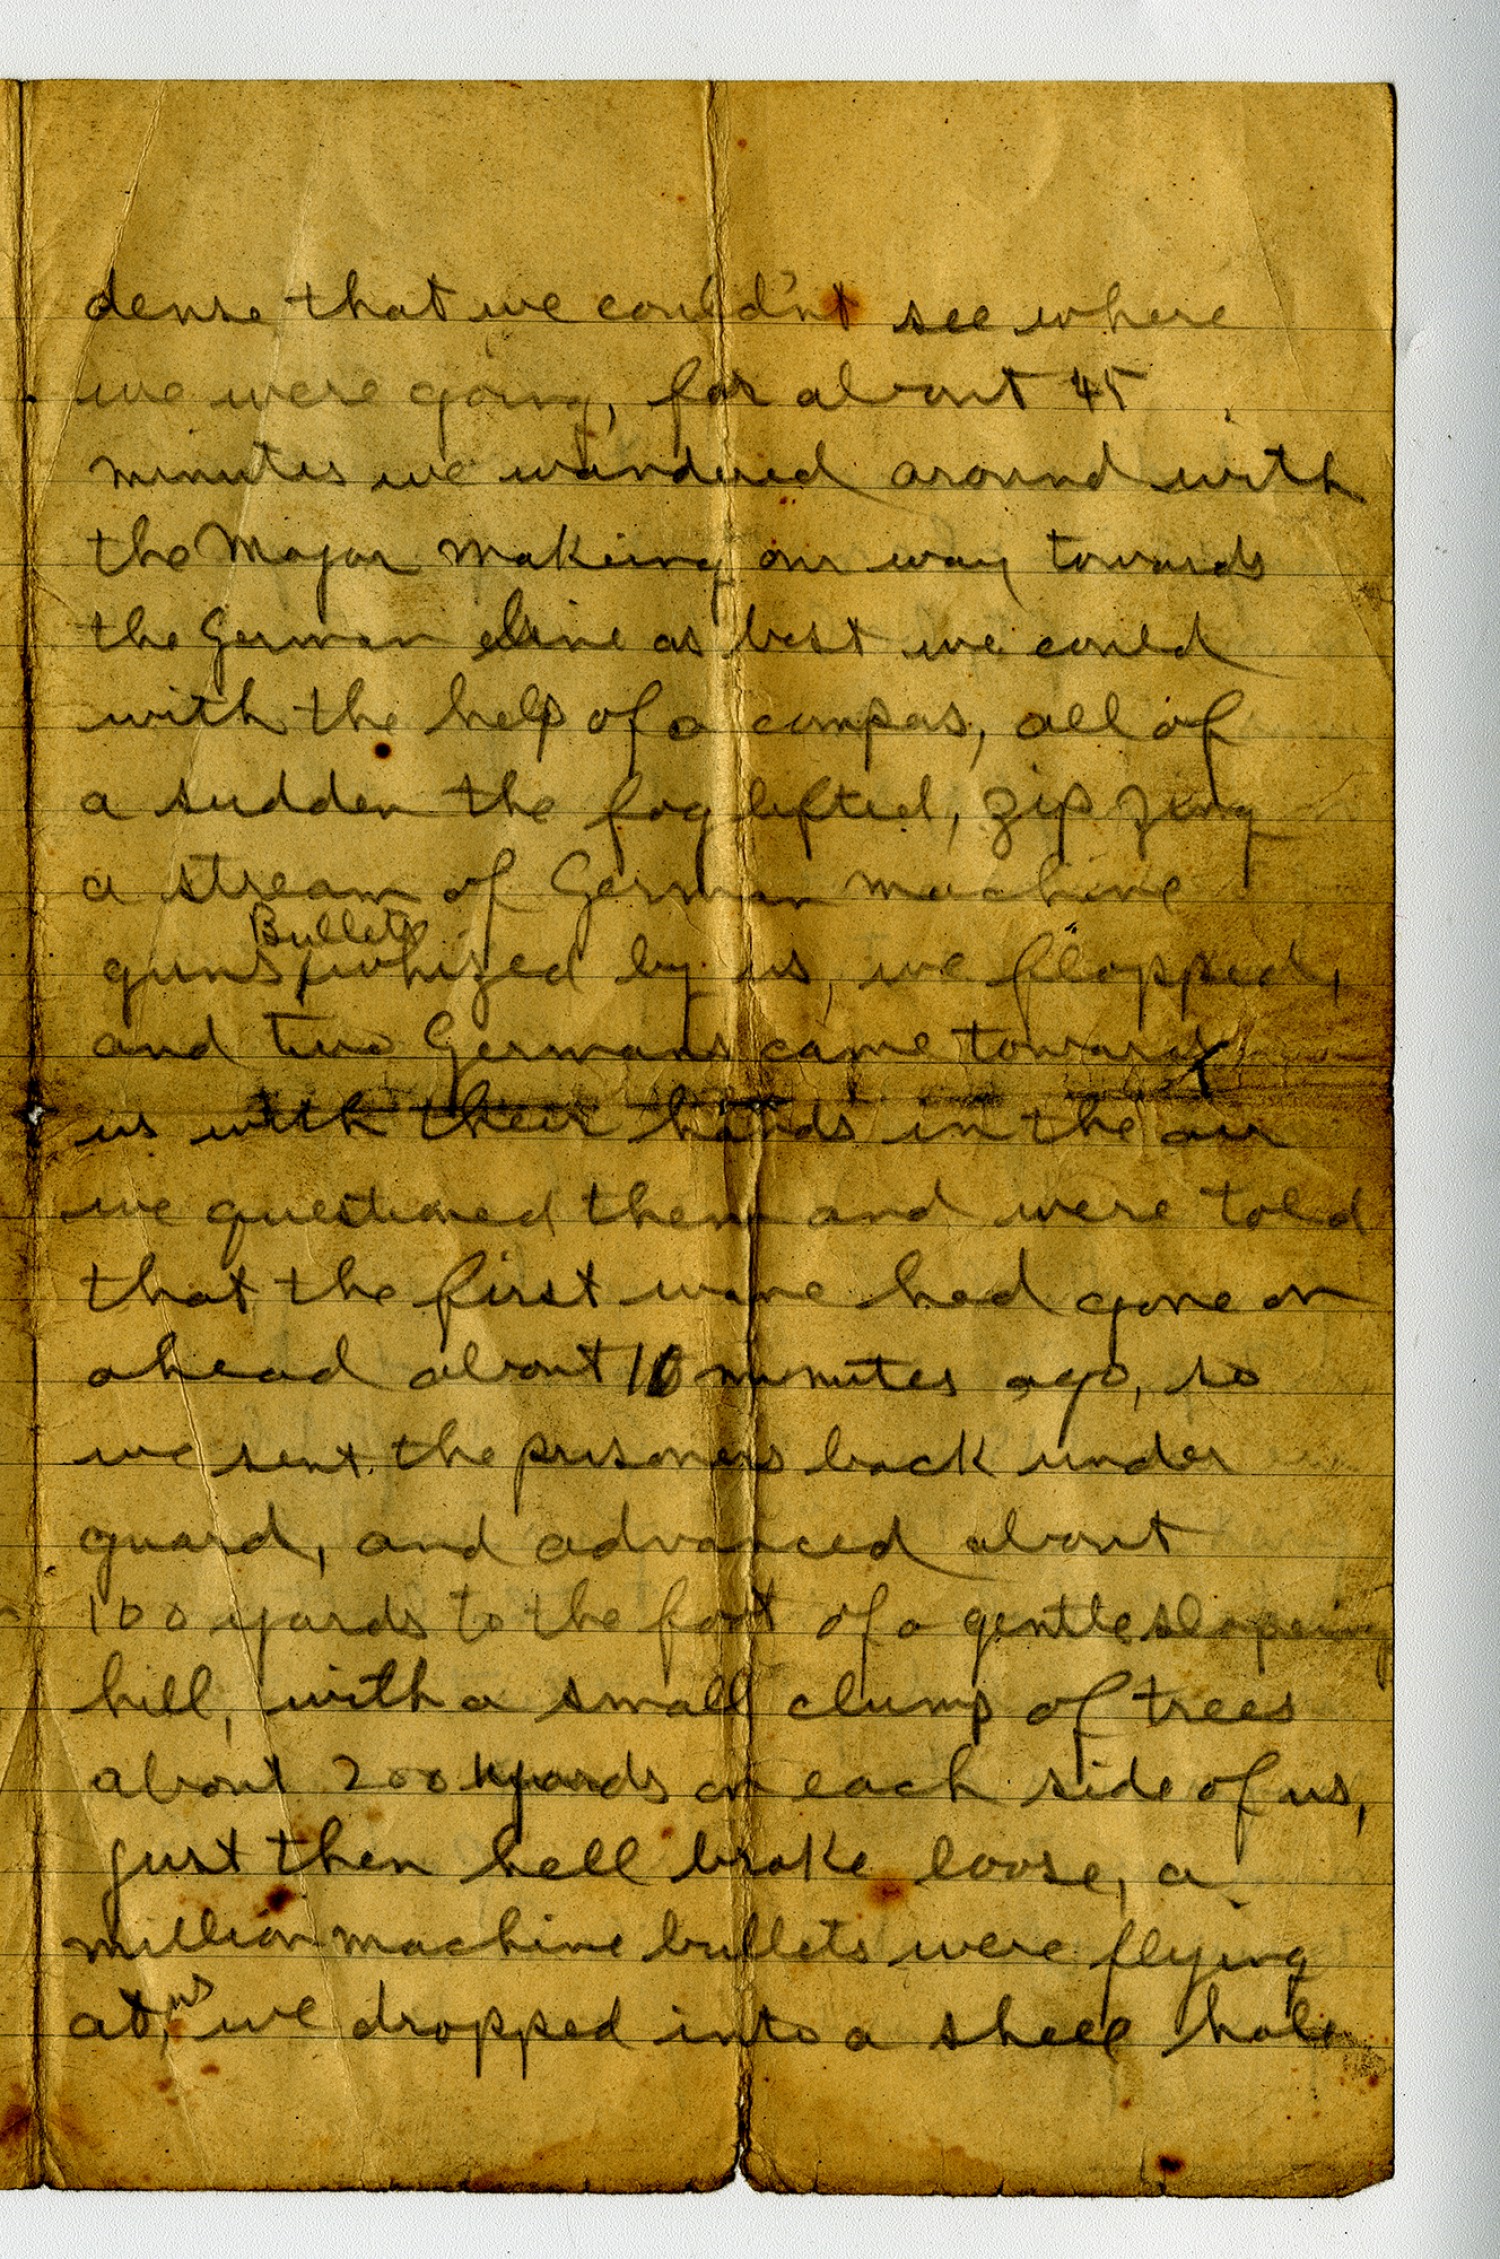 dense that we could'nt see where
we were going, for about 45
minutes we wandered around with
the Major makeing our way towards
the German line as best we could
with the help of a compas, all of
a sudden the fog lifted, zip zing
a stream of German machine
Bullets
guns whized by us, we flopped,
and two Germans came towards
us with their hands in the air
we questioned them and were told
that the first wave had gone on
ahead about 10 minutes ago, so
we sent the prisoners back under
guard, and advanced about
100 yards to the foot of a gentle slopeing
hill, with a small clump of trees
about 200 yards on each side of us,
just then hell broke loose, a
million machine bullets were flying
us
at, we dropped into a shell hole